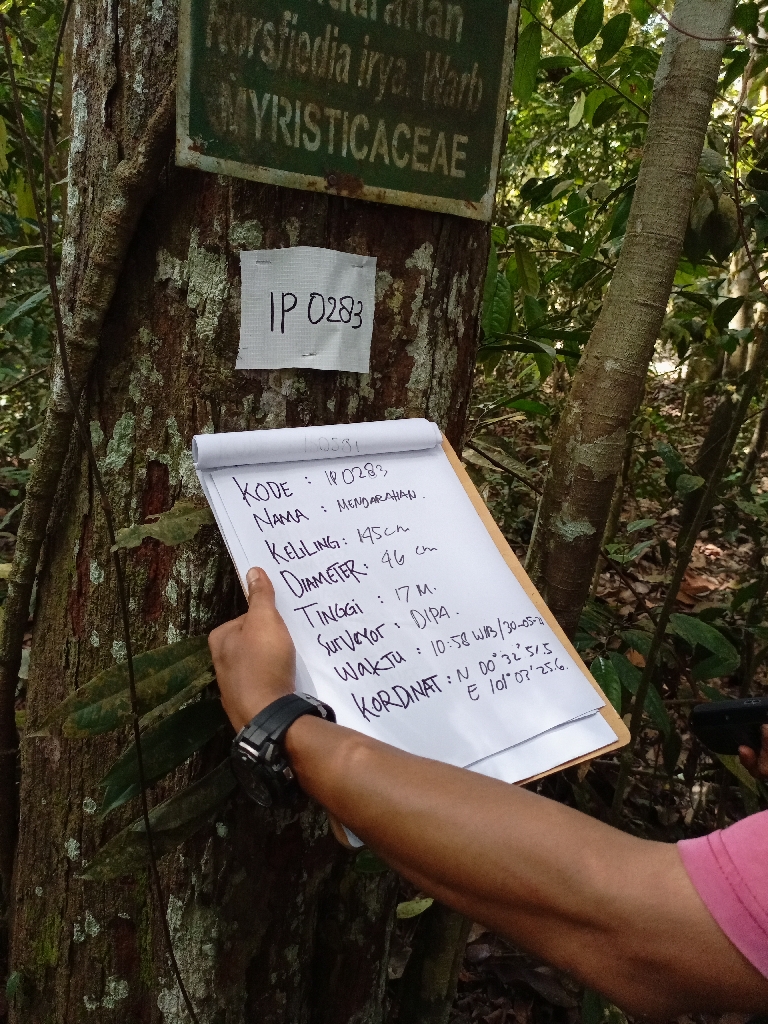 Horsfiedia irya. Warb
MYRISTICACEAE
IP 0283
KODE : IP 0283
NAMA : MENDARAHAN.
KELILING : 145 cm
DIAMETER : 46 cm
TINGGI : 17 M.
SURVEYOR : DIPA.
WAKTU : 10:58 WIB/30-05-2
KORDINAT : N 00° 32' 51,5
E 101° 03' 25.6.